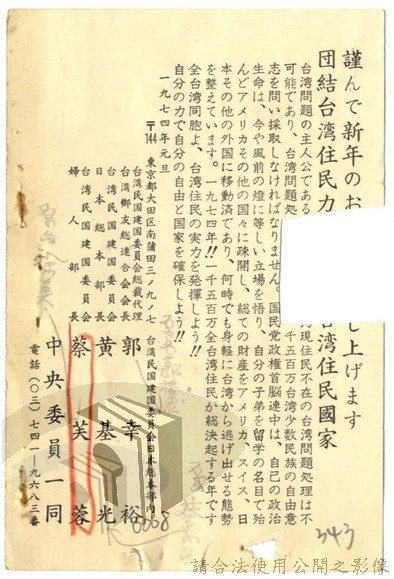 謹んで新年のお
し上げます
団結台湾住民力
台湾住民國家
台湾問題の主人公である
現住民不在の台湾問題処理は不
可能であり、台湾問題処
千五百万台湾少数民族の自由意
志を問い採取しなければなりません。国民党政権首脳連中は、自己の政治
生命は、今や風前の燈に等しい立場を悟り、自分の子弟を留学の名目で殆
んどアメリカその他の国々に疎開し、総ての財産をアメリカ、スイス、日
本その他の外国に移動済であり、何時でも身軽に台湾から逃げ出せる態勢
を整えています。一九七四年!!一千五百万全台湾住民が総決起する年です
全台湾同胞よ、台湾住民の実力を発揮しよう!!
自分の力で自分の自由と国家を確保しよう!!
一九七四年元旦
〒144 東京都大田区南蒲田三ノ九ノ七 台湾民国建国委員会日本総本部内
台湾民国建国委員会総裁代理
台湾郷友総連合会会長 郭幸裕
台湾民国建国委員会
日本総本部長 黄基光
台湾民国建国委員会
婦人部長 蔡芙蓉
中央委員一同
電話(〇三)七四一ノ九六八三番
0068
343
請合法使用公開之影像